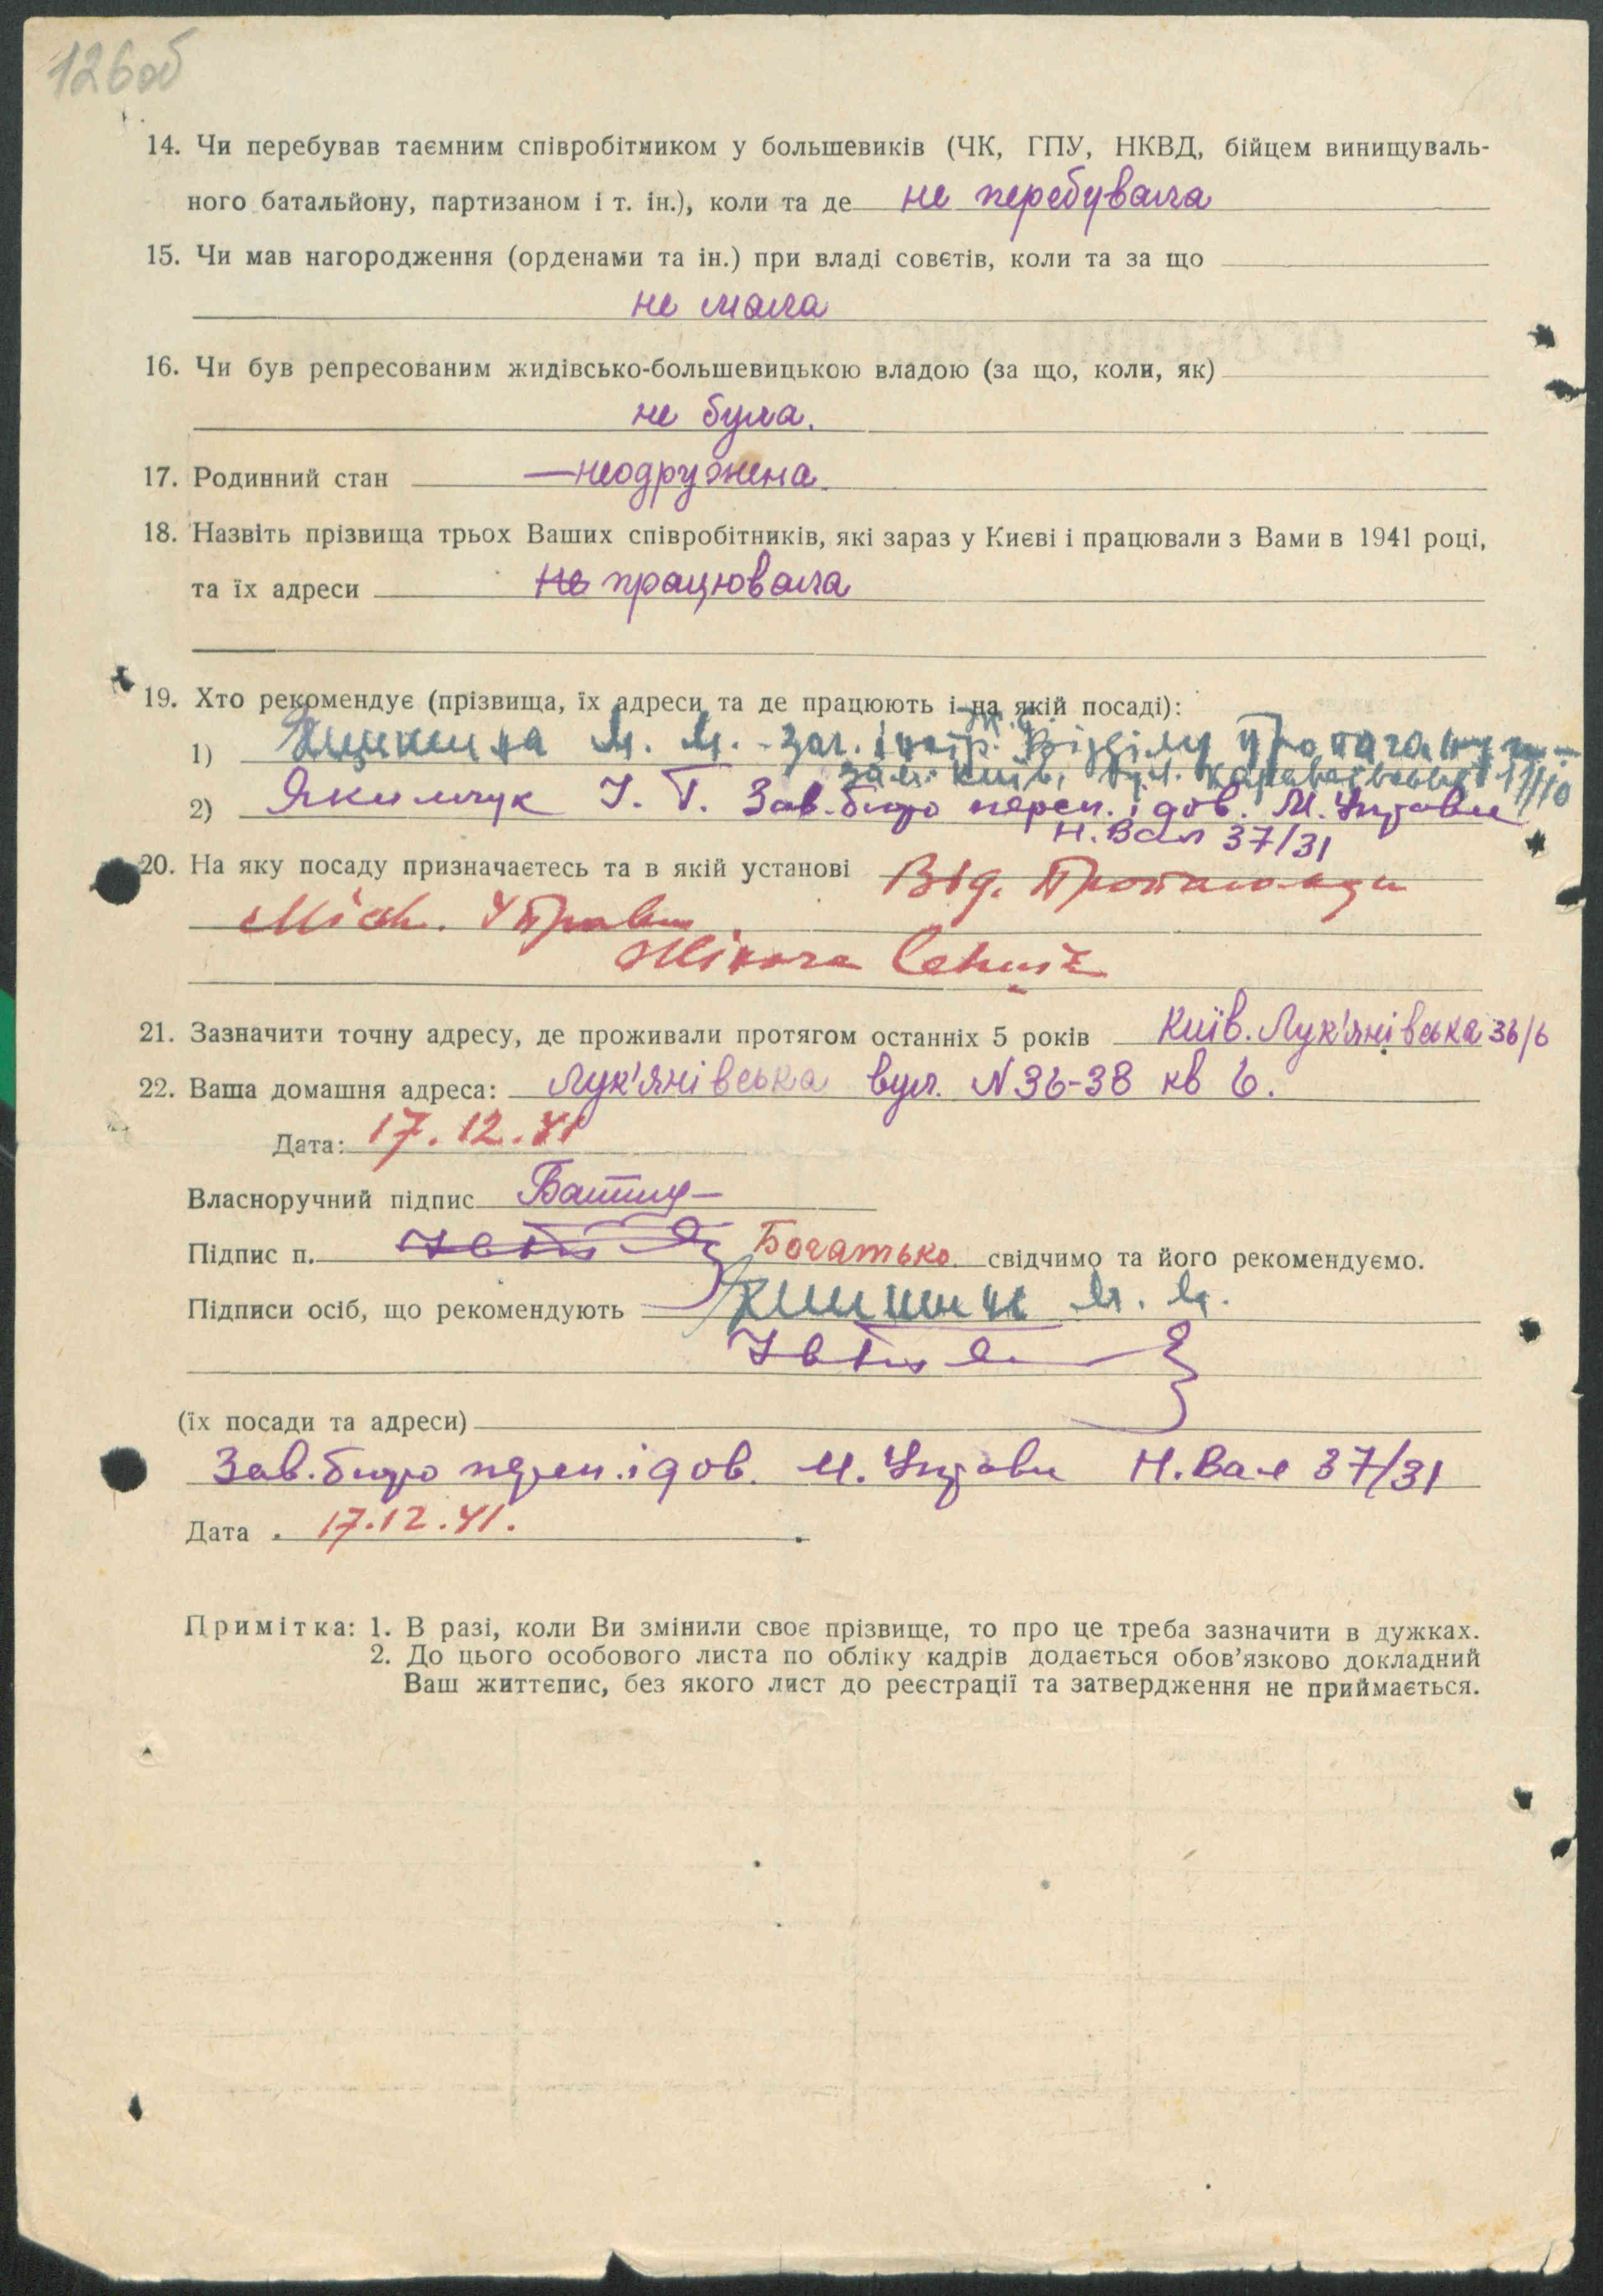 126об
14. Чи перебував таємним співробітником у большевиків (ЧК, ГПУ, НКВД, бійцем винищуваль-
ного батальйону, партизаном і т. ін.), коли та де не перебувала
15. Чи мав нагородження (орденами та ін.) при владі совєтів, коли та за що
не мала
16. Чи був репресованим жидівсько-большевицькою владою (за що, коли, як)
не була.
17. Родинний стан —неодружена.
18. Назвіть прізвища трьох Ваших співробітників, які зараз у Києві і працювали з Вами в 1941 році,
та їх адреси не працювала
19. Хто рекомендує (прізвища, їх адреси та де працюють і на якій посаді):
1) М. М. - Відділу пропаганди
Київ, вул. 11/10
2) Якимчук І. Т. Зав. бюро переп. і дов. М. Управи
Н. Вал 37/31
20. На яку посаду призначаєтесь та в якій установі Від. Пропаганди
Міськ. Управи
Жіноча Секція
21. Зазначити точну адресу, де проживали протягом останніх 5 років Київ. Лук'янівська 36/6
22. Ваша домашня адреса: Лук'янівська вул. N 36-38 кв 6.
Дата: 17.12.41
Власноручний підпис
Підпис п. Богатько свідчимо та його рекомендуємо.
Підписи осіб, що рекомендують М. М.
(їх посади та адреси)
Зав. бюро переп. і дов. М. Управи Н. Вал 37/31
Дата . 17.12.41.
Примітка: 1. В разі, коли Ви змінили своє прізвище, то про це треба зазначити в дужках.
2. До цього особового листа по обліку кадрів додається обов’язково докладний
Ваш життєпис, без якого лист до реєстрації та затвердження не приймається.